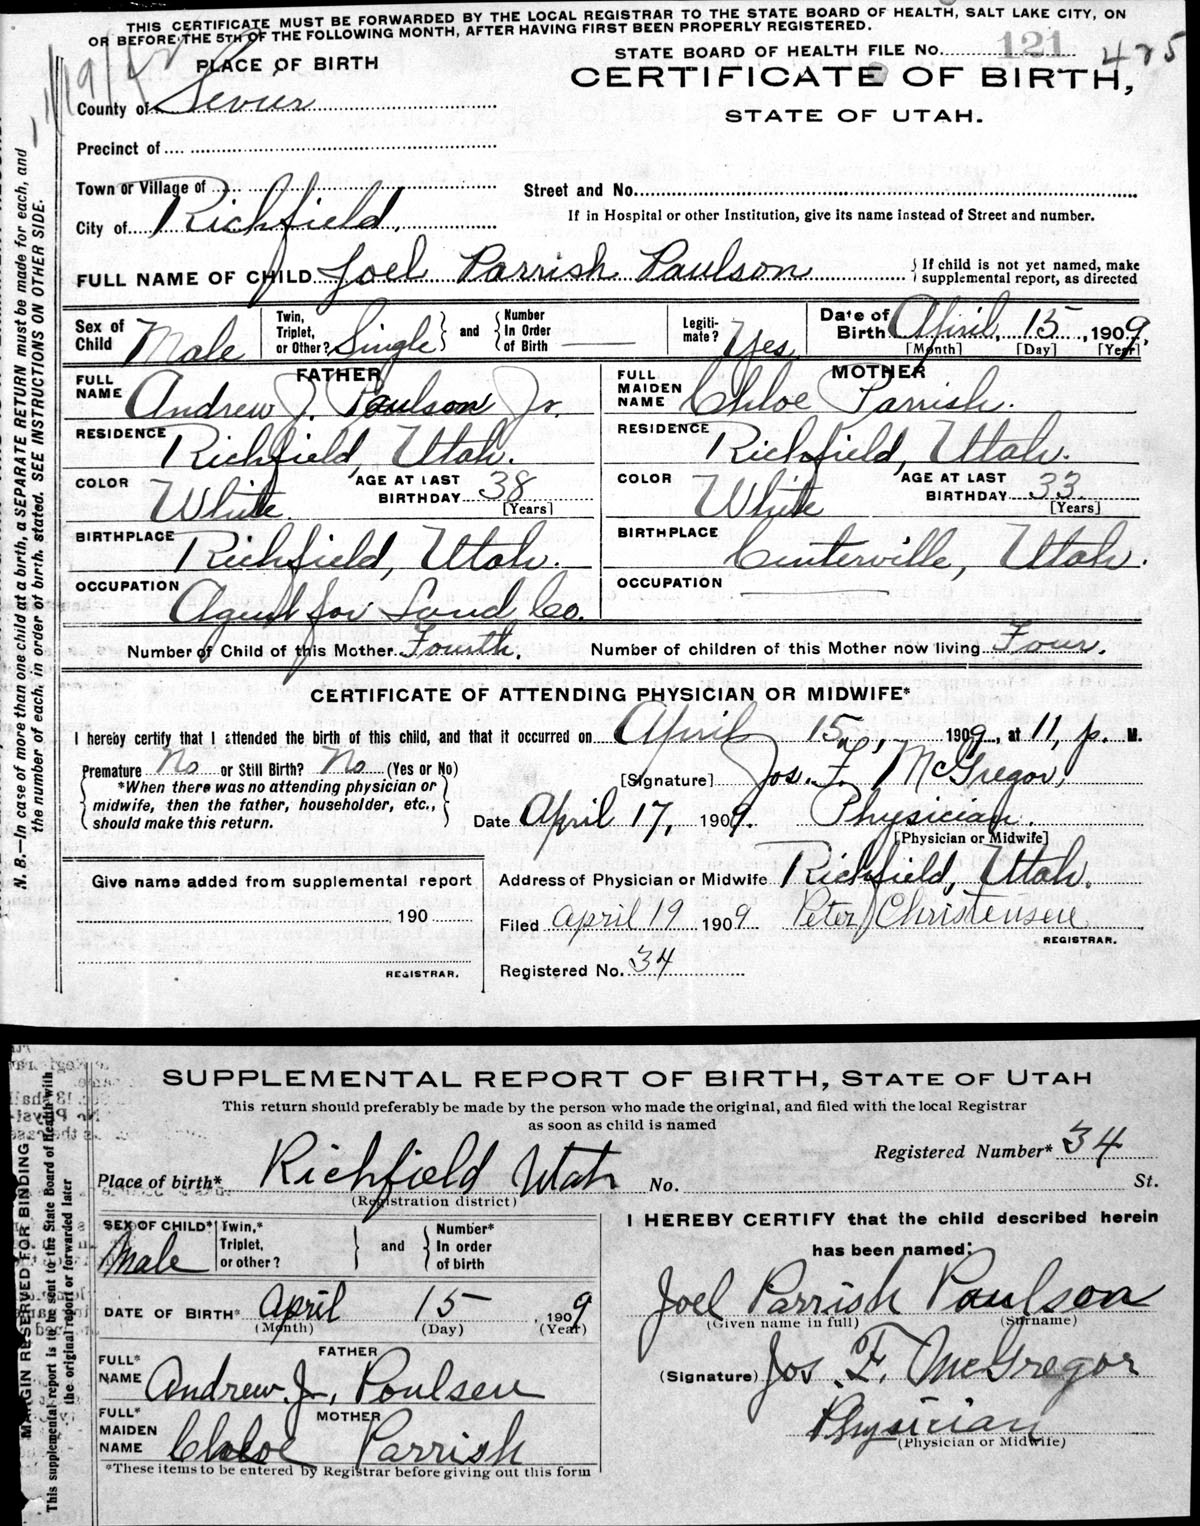 THIS CERTIFICATE MUST BE FORWARDED BY THE LOCAL REGISTRAR TO THE STATE BOARD OF HEALTH, SALT LAKE CITY, ON
OR BEFORE THE 5TH OF THE FOLLOWING MONTH, AFTER HAVING FIRST BEEN PROPERLY REGISTERED.
STATE BOARD OF HEALTH FILE No. 121 475
PLACE OF BIRTH
CERTIFICATE OF BIRTH,
STATE OF UTAH.
County of Sevier
Precinct of
Town or Village of
Street and No.
City of Richfield.
If in Hospital or other Institution, give its name instead of Street and number.
FULL NAME OF CHILD Joel Parrish Paulson
If child is not yet named, make
supplemental report, as directed
Sex of Child Male
Twin, Triplet, or Other? Single and Number In Order of Birth
Legiti- mate? Yes
Date of Birth April, 15, 1909.
[Month] [Day] [Year]
FATHER
MOTHER
FULL NAME Andrew J. Paulson Jr.
FULL MAIDEN NAME Chloe Parrish.
RESIDENCE Richfield, Utah.
RESIDENCE Richfield, Utah.
COLOR White. AGE AT LAST BIRTHDAY 38 [Years]
COLOR White AGE AT LAST BIRTHDAY 33 [Years]
BIRTHPLACE Richfield, Utah.
BIRTHPLACE Centerville, Utah.
OCCUPATION Agent for Land Co.
OCCUPATION
Number of Child of this Mother Fourth.
Number of children of this Mother now living Four.
CERTIFICATE OF ATTENDING PHYSICIAN OR MIDWIFE*
I hereby certify that I attended the birth of this child, and that it occurred on April 15, 1909, at 11, p. M.
Premature No or Still Birth? No (Yes or No)
*When there was no attending physician or
midwife, then the father, householder, etc.,
should make this return.
[Signature] Jos. F. McGregor,
Date April 17, 1909. Physician.
[Physician or Midwife]
Give name added from supplemental report
190
REGISTRAR.
Address of Physician or Midwife Richfield, Utah.
Filed April 19 1909 Peter Christensen
REGISTRAR.
Registered No. 34
N. B.—In case of more than one child at a birth, a SEPARATE RETURN must be made for each, and
the number of each, in order of birth, stated. SEE INSTRUCTIONS ON OTHER SIDE.
SUPPLEMENTAL REPORT OF BIRTH, STATE OF UTAH
This return should preferably be made by the person who made the original, and filed with the local Registrar
as soon as child is named
Registered Number* 34
Place of birth* Richfield Utah No. St.
(Registration district)
SEX OF CHILD* Male
Twin,* Triplet, or other? and Number* In order of birth
DATE OF BIRTH* April 15, 1909
(Month) (Day) (Year)
FATHER
FULL* NAME Andrew Jr, Poulsen
MOTHER
FULL* MAIDEN NAME Chloe Parrish
*These items to be entered by Registrar before giving out this form
I HEREBY CERTIFY that the child described herein
has been named:
Joel Parrish Paulson
(Given name in full) (Surname)
(Signature) Jos. F. McGregor
Physician
(Physician or Midwife)
MARGIN RESERVED FOR BINDING
This supplemental report is to be sent to the State Board of Health with
the original report or forwarded later